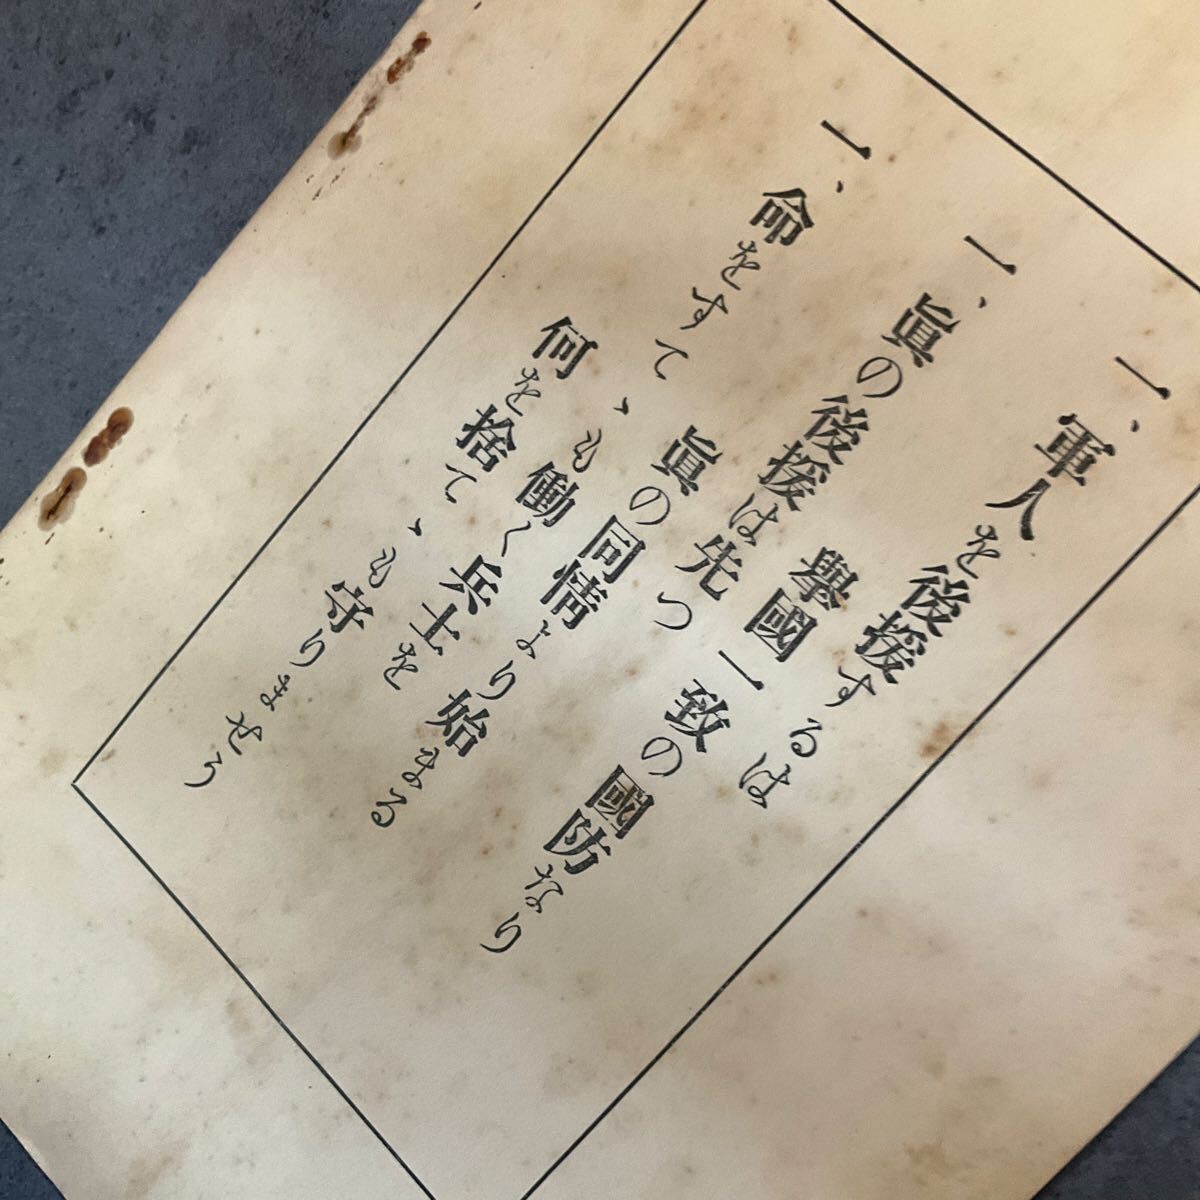 一、軍人を後援するは
擧國一致の國防なり
一、眞の後援は先つ
眞の同情より始まる
一、命をすてゝも働く兵士を
何を捨てゝも守りませう